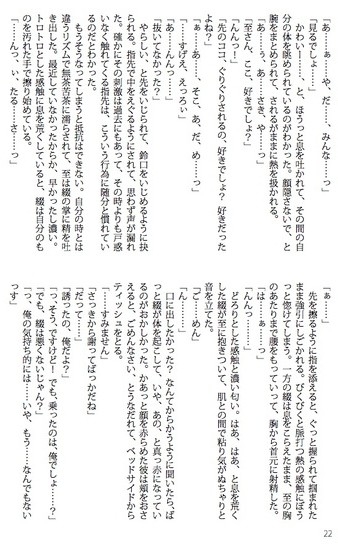 「あ…ぁーっ、や、だ…っ、みんな…っ」
「見るでしょ…っ」
かわいー…、と、ほうっと息を吐かれて、その間の自
分の体を眺められているのがわかった。顔隠さないで、と
腕をまとめられて、されるがままに熱を扱かれる。
「あ…っぅ、あ…さき、や…っ」
「至さん、ここ、好きでしょ？」
「んんっ！」
「先のココ、ぐりぐりされるの、好きでしょ？好きだった
よね？」
「ぁー…っ、あ…そこ、あ、だ、め…っ」
「抜いてなかった？」
「あ…んんっ…っ」
「…すげえ、えっろい」
やらしい、と先をいじられて、鈴口をいじめるように抉
られる。指先で中をえぐるようにされて、思わず声が漏れ
た。確かにその刺激は過去にもあって、その時よりも戸惑
いなく触れてくる指先は、こういう行為に随分と慣れてい
るのだとわかった。
もうそうなってしまうと抵抗はできない。自分の時とは
違うリズムで無茶苦茶に濡らされて、至は綴の掌に精を吐
き出した。最近していなかったからか、早かったし濃い。
トロトロとした感触に息を荒くしていると、綴は自分のも
のを汚れた手で擦り始めている。
「……んっ、ぃ、たる…さ…っ」
「ぁ……」
先を擦るように指を添えると、ぐっと握られて掴まれた
まま強引にしごかれる。びくびくと脈打つ熱の感触にぼう
っと惚けてしまう。一方の綴は息をこらえたまま、至の胸
のあたりまで腰をもっていって、胸から首元に射精した。
「は…ぁ…っ」
「んんっ…っ」
どろりとした感触と濃い匂い。はあ、はあ、と息を荒く
した綴が至に抱きついて、肌との間で粘り気がぬちゃりと
音を立てた。
「ご…めん」
「ん……」
口に出したかった？なんてからかうように聞いたら、ば
っと綴が体を起こして、いや、あの、と真っ赤になってい
るのがおかしかった。かあっと顔を赤らめた彼は頬をおさ
えると、ごめんなさい、とうなだれて、ベッドサイドから
ティッシュをとる。
「…すみません」
「さっきから謝ってばっかだね」
「だって……」
「誘ったの、俺だよ？」
「っ、そう、ですけど！でも、乗ったのは、俺でしょ…？」
「でも、綴は悪くないじゃん？」
「っ、俺の気持ち的には……いや、もう……なんでもない
っす」
22